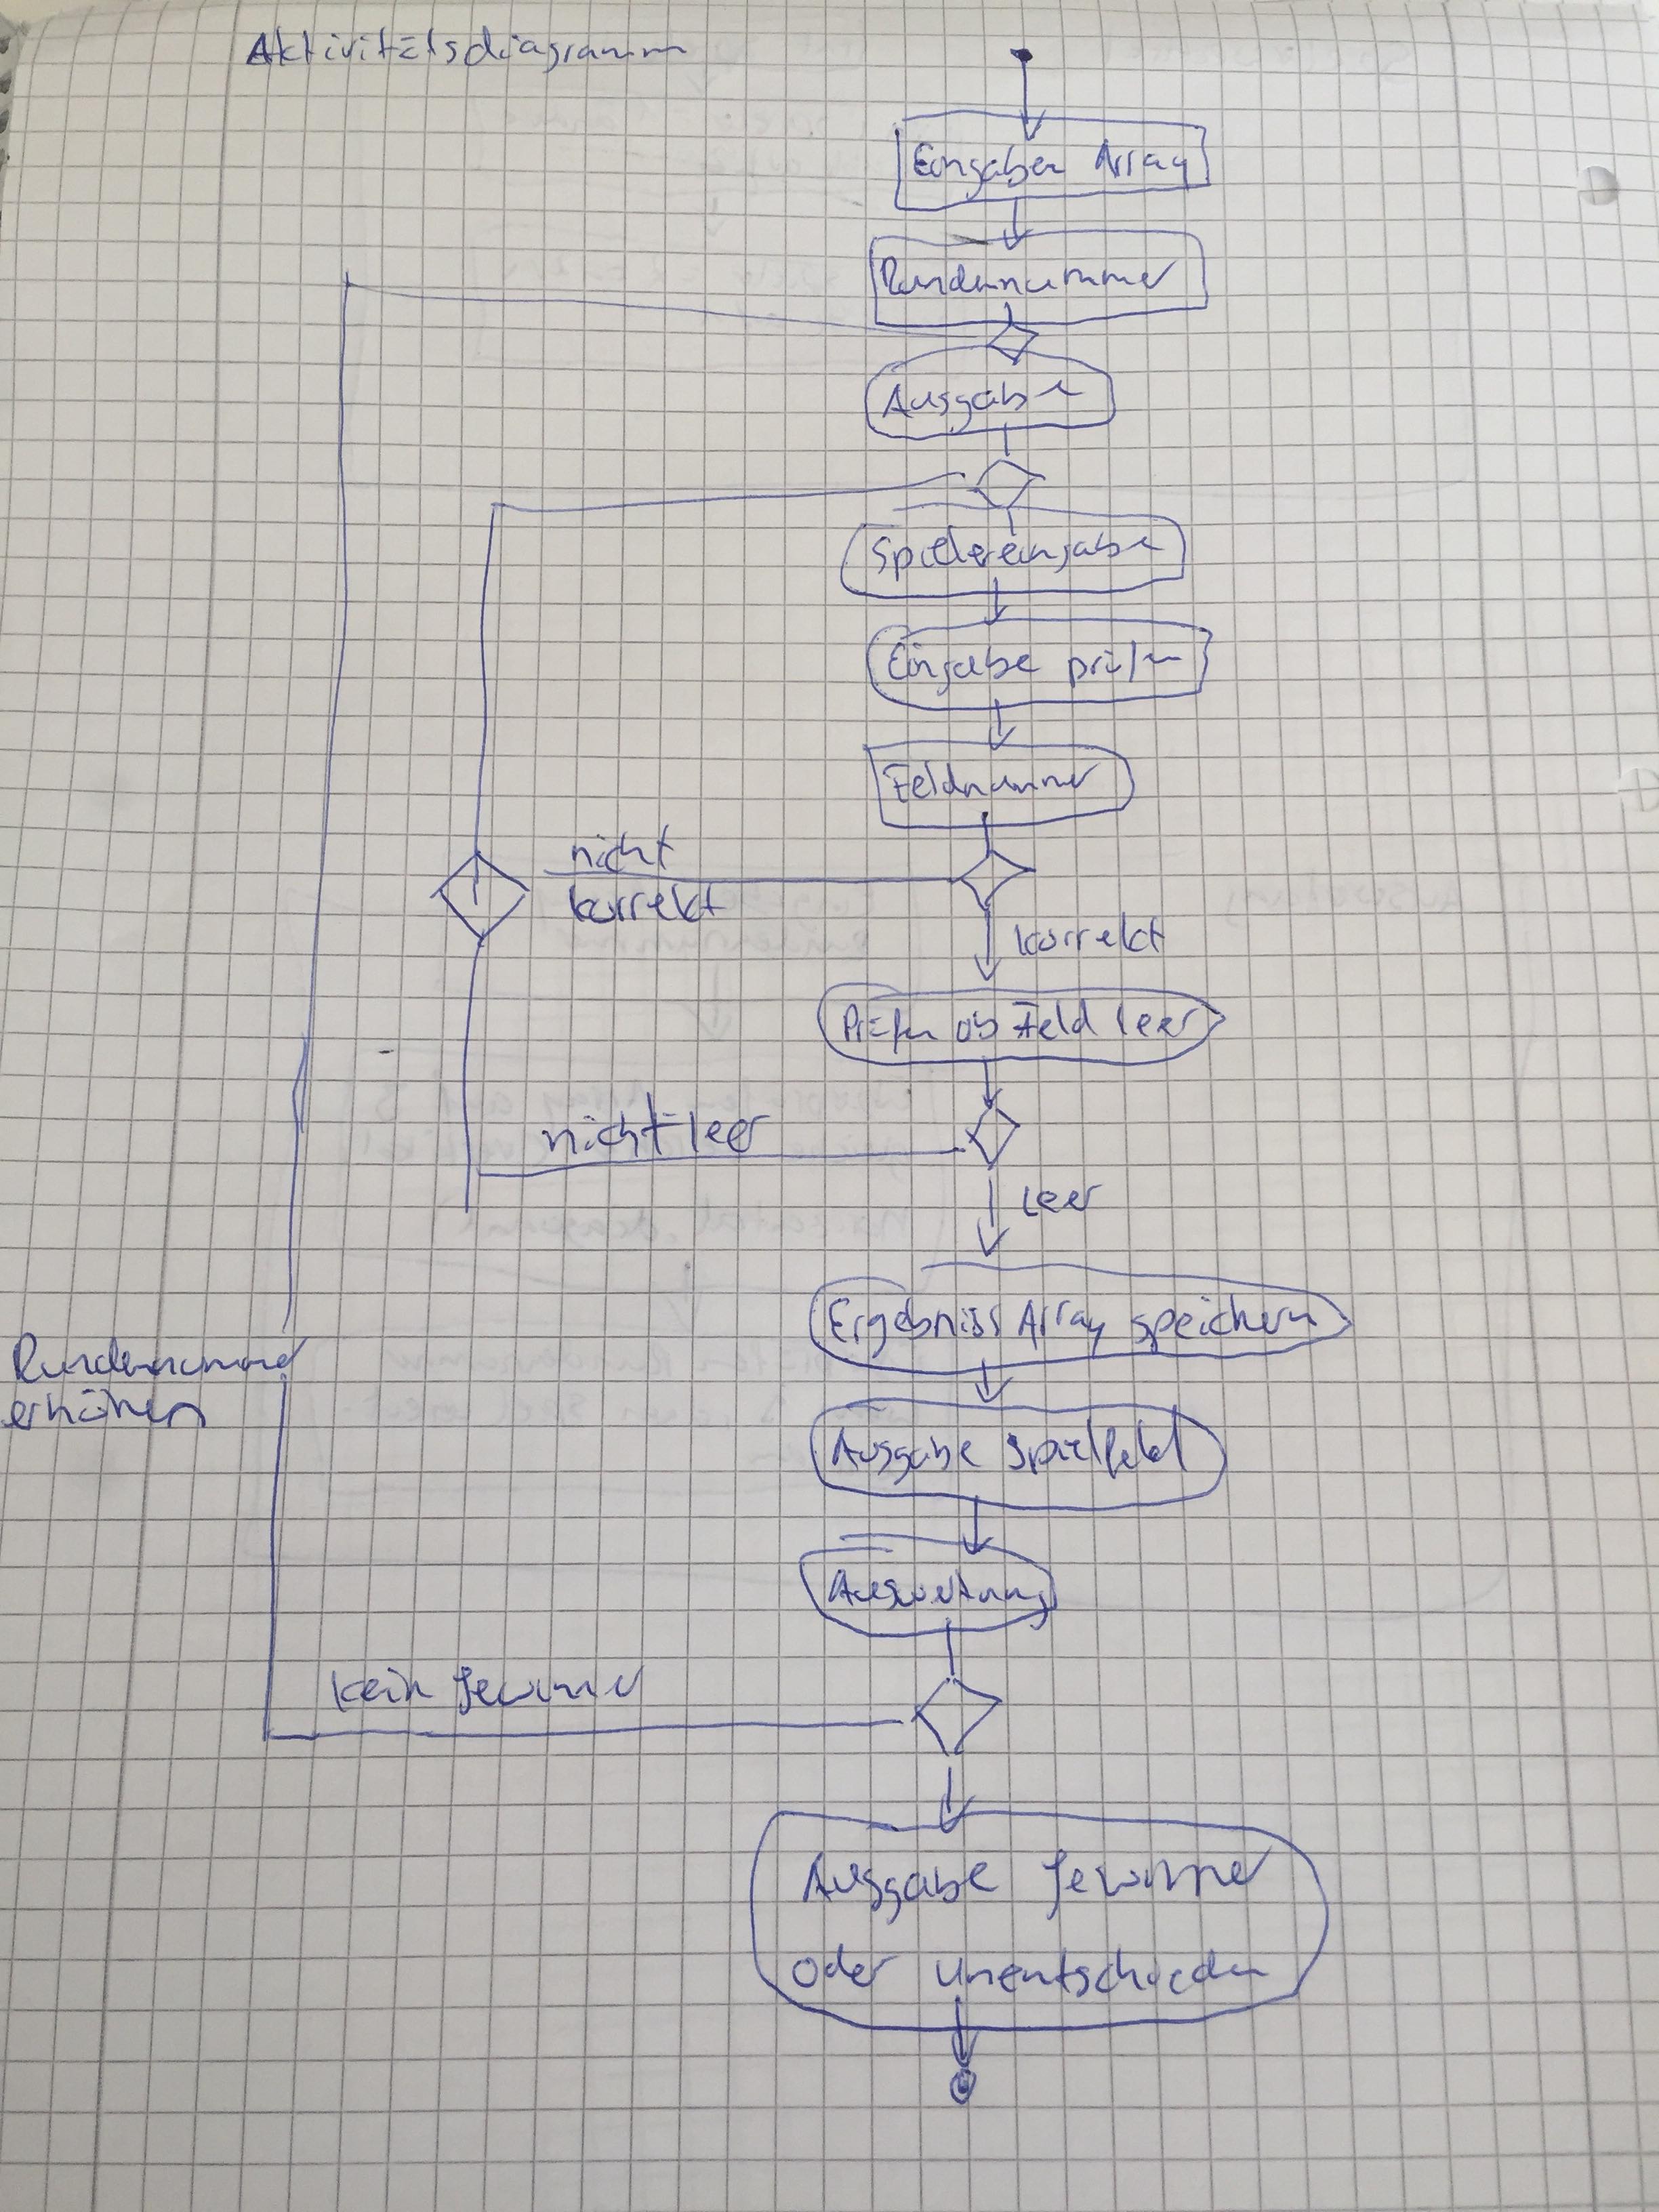 Aktivitätsdiagramm
Eingaben Array
Rundennummer
Ausgabe
Spielereingabe
Eingabe prüfen
Feldnummer
nicht
korrekt
korrekt
Prüfen ob Feld leer
nicht leer
leer
Ergebniss Array speichern
Rundennummer
erhöhen
Ausgabe Spielfeld
Auswertung
kein Gewinner
Ausgabe Gewinner
oder Unentschieden